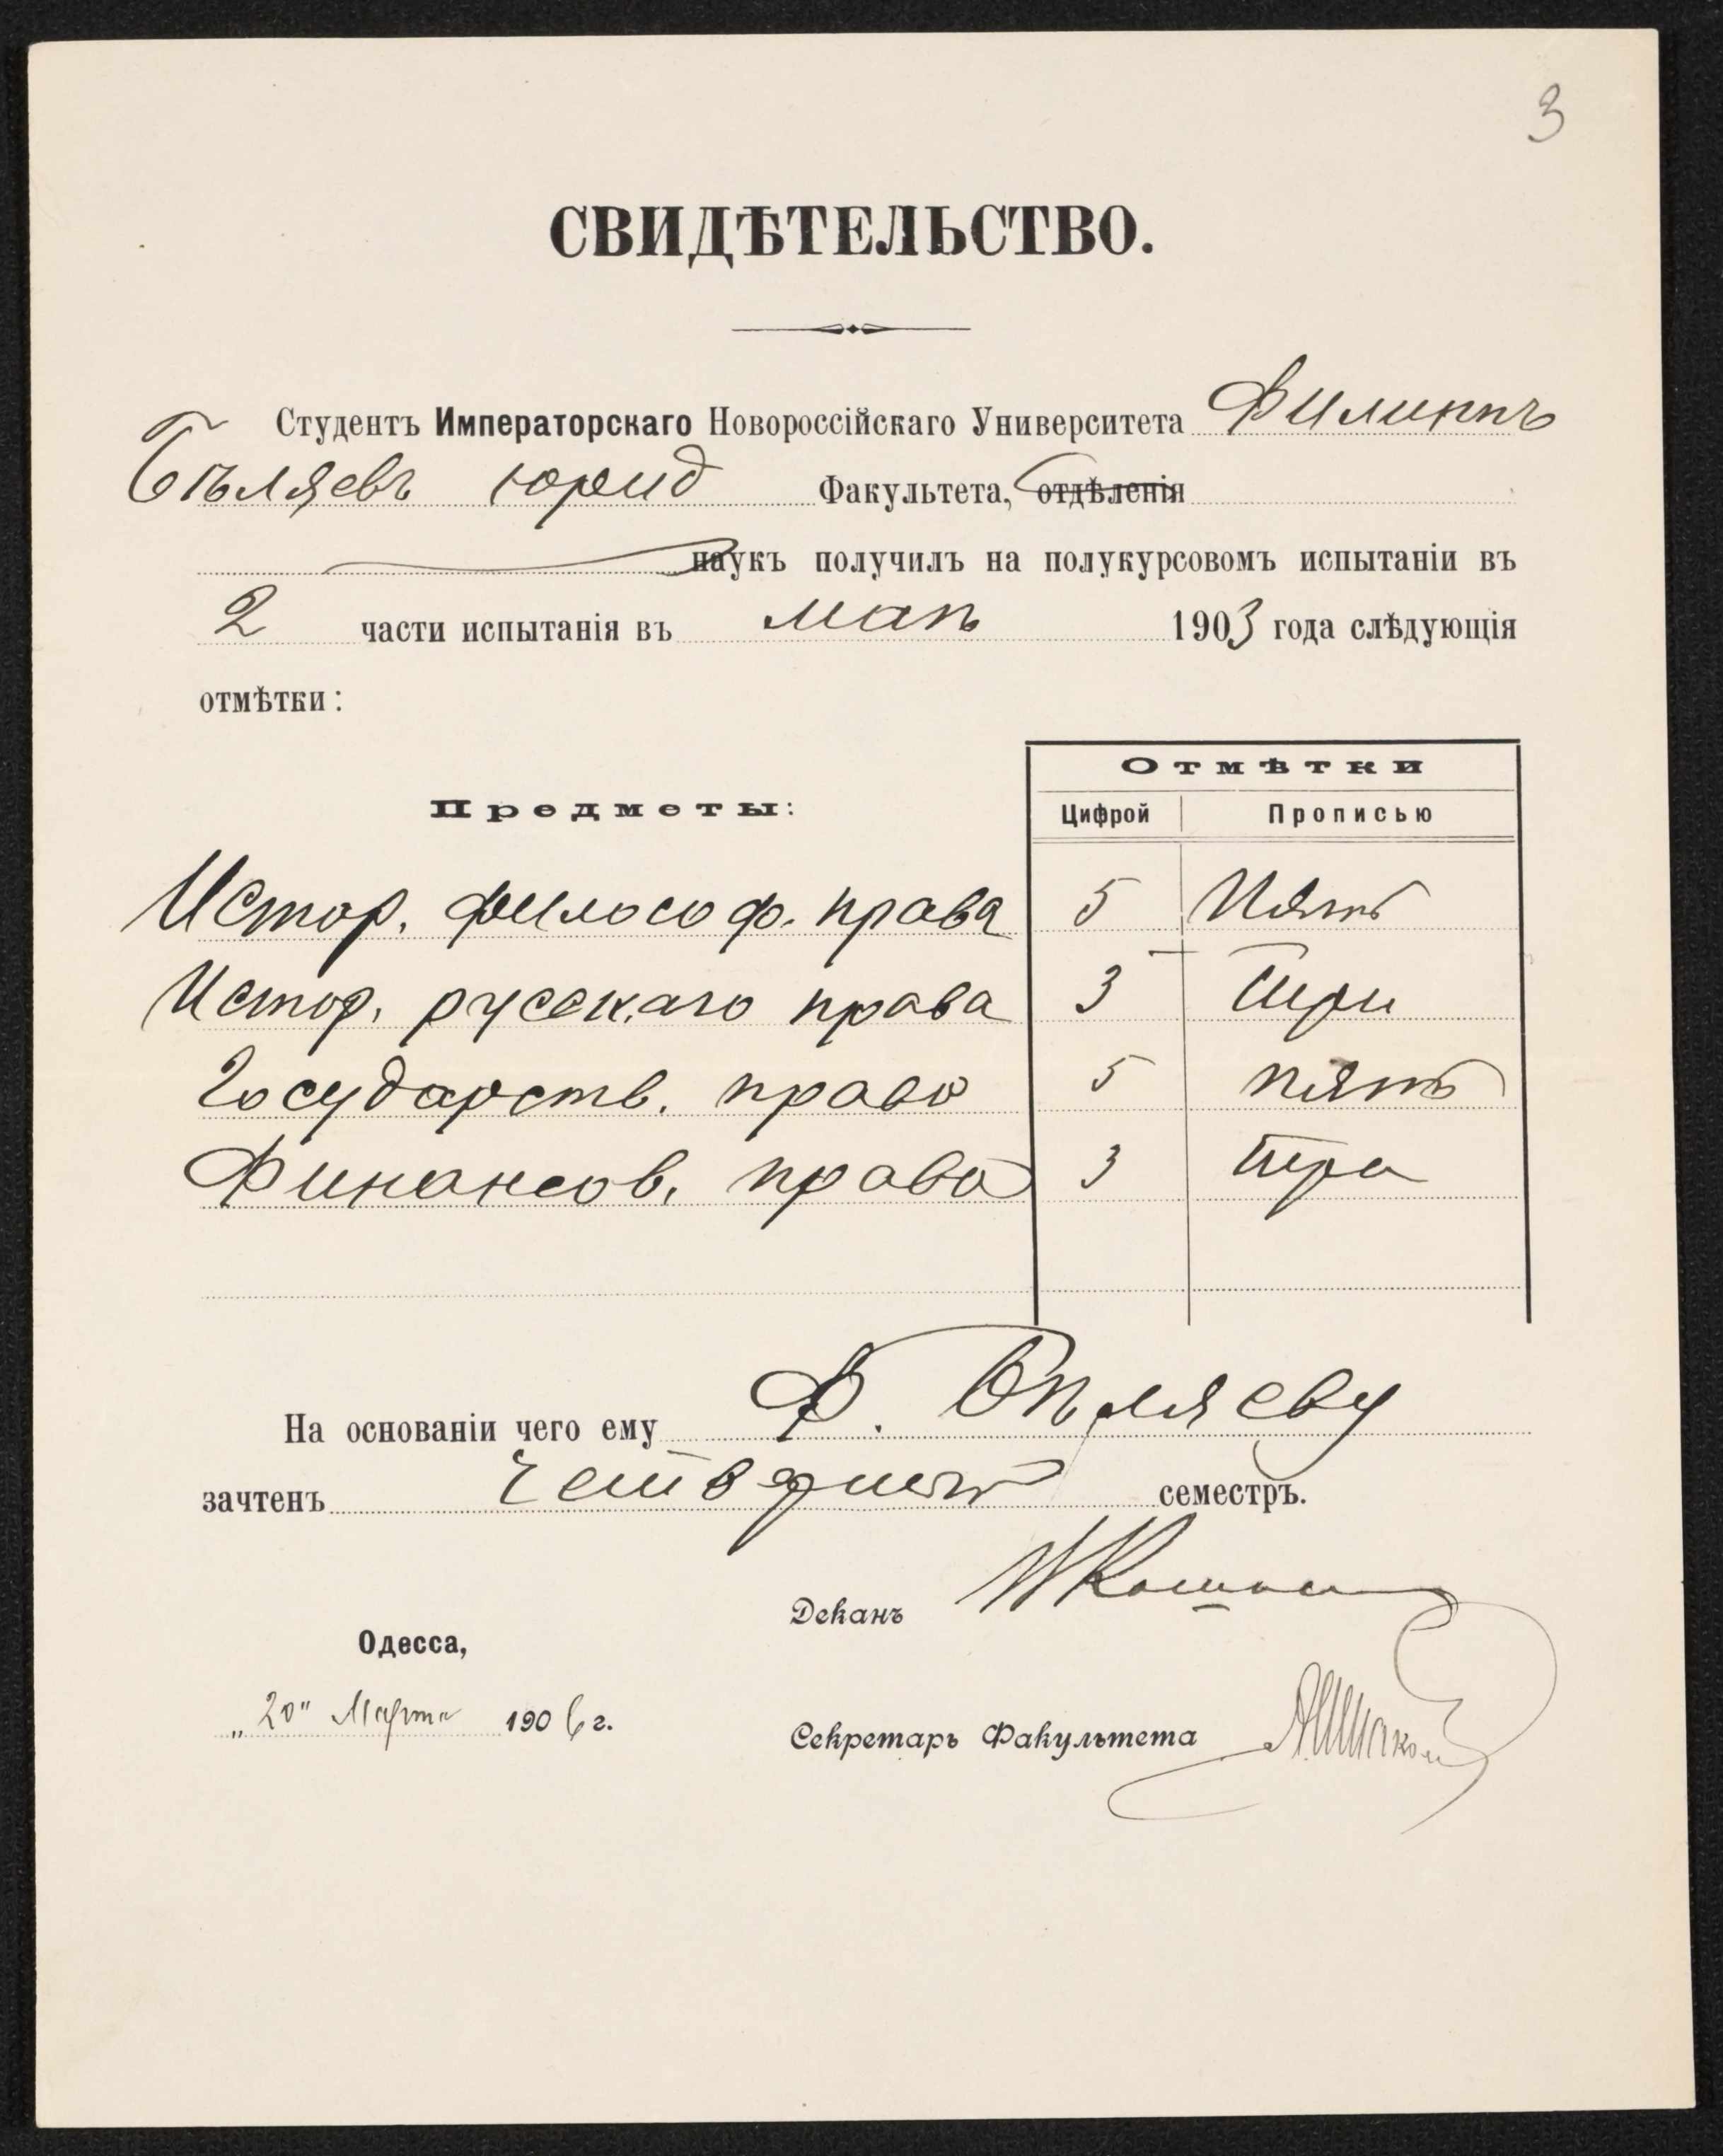 3
СВИДѢТЕЛЬСТВО.
Студентъ Императорскаго Новороссійскаго Университета Филиппъ
Бѣляевъ юрид Факультета, отдѣленія
наукъ получилъ на полукурсовомъ испытаніи въ
2 части испытанія въ маѣ 1903 года слѣдующія
отмѣтки:
Отмѣтки
Предметы: Цифрой Прописью
Истор. философ. права 5 Пять
Истор. русскаго права 3 три
Государств. право 5 пять
Финансов. право 3 три
На основаніи чего ему Ф. Бѣляеву
зачтенъ четвертый семестръ.
Деканъ
Одесса,
„20" Марта 1906 г.
Секретарь Факультета